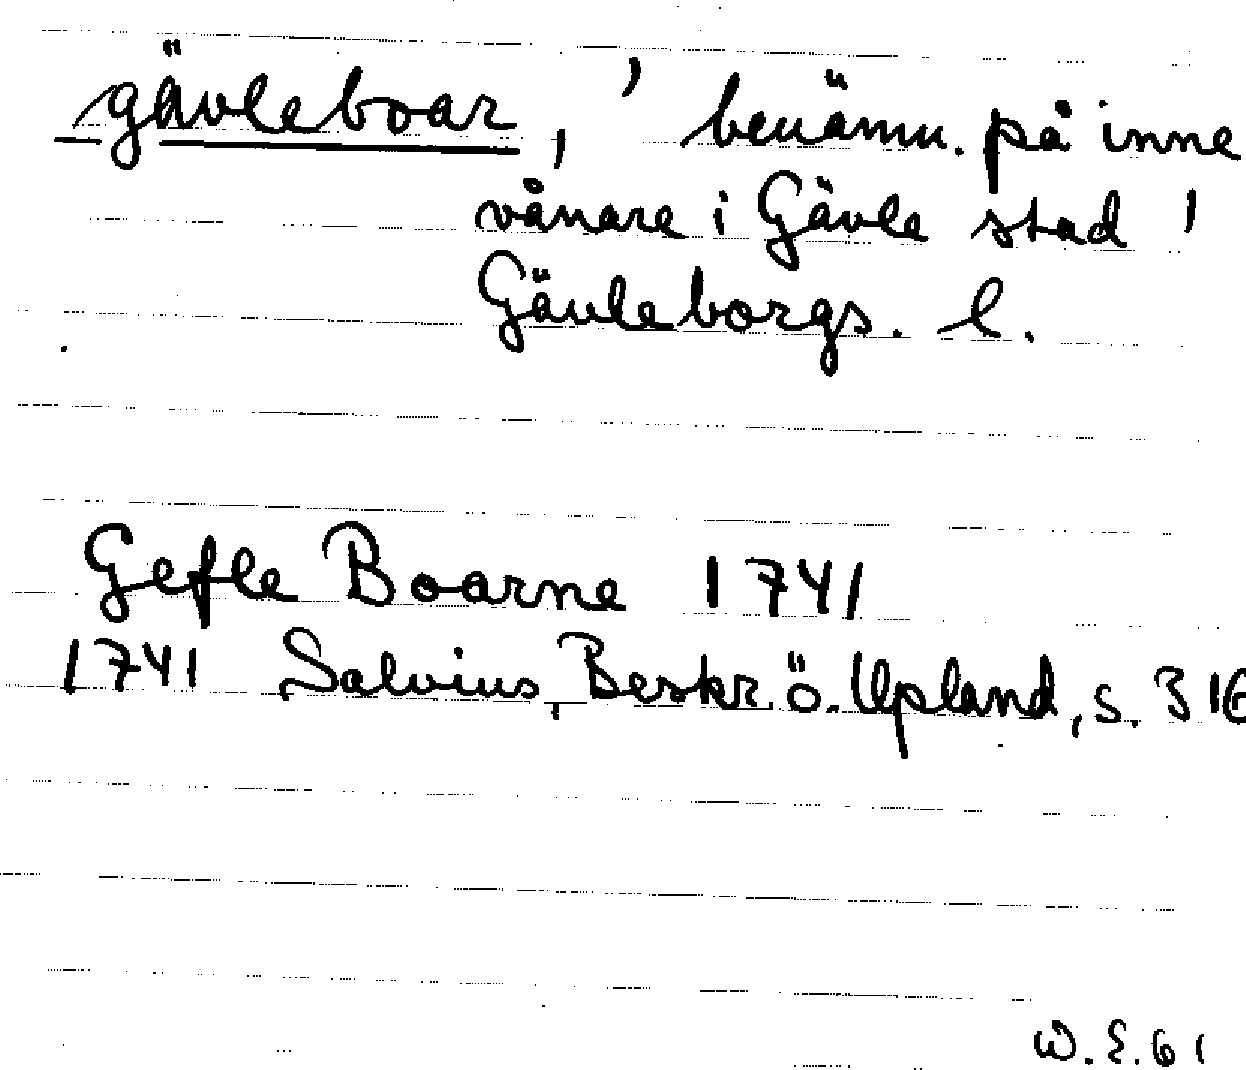 gävleboar, 'benämn. på inne
vånare i Gävle stad'
Gävleborgs. l.
Gefle Boarne 1741
1741 Salvius, Beskr. ö. Upland, s. 316
W. E. 61